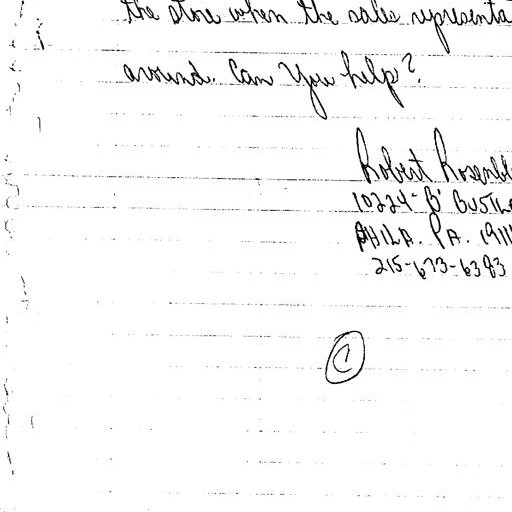 the store when the sales representa
around. Can you help?
Robert Rosenbl
10224-'B' BUSTL
PHILA. PA. 1911
215-673-6383
C